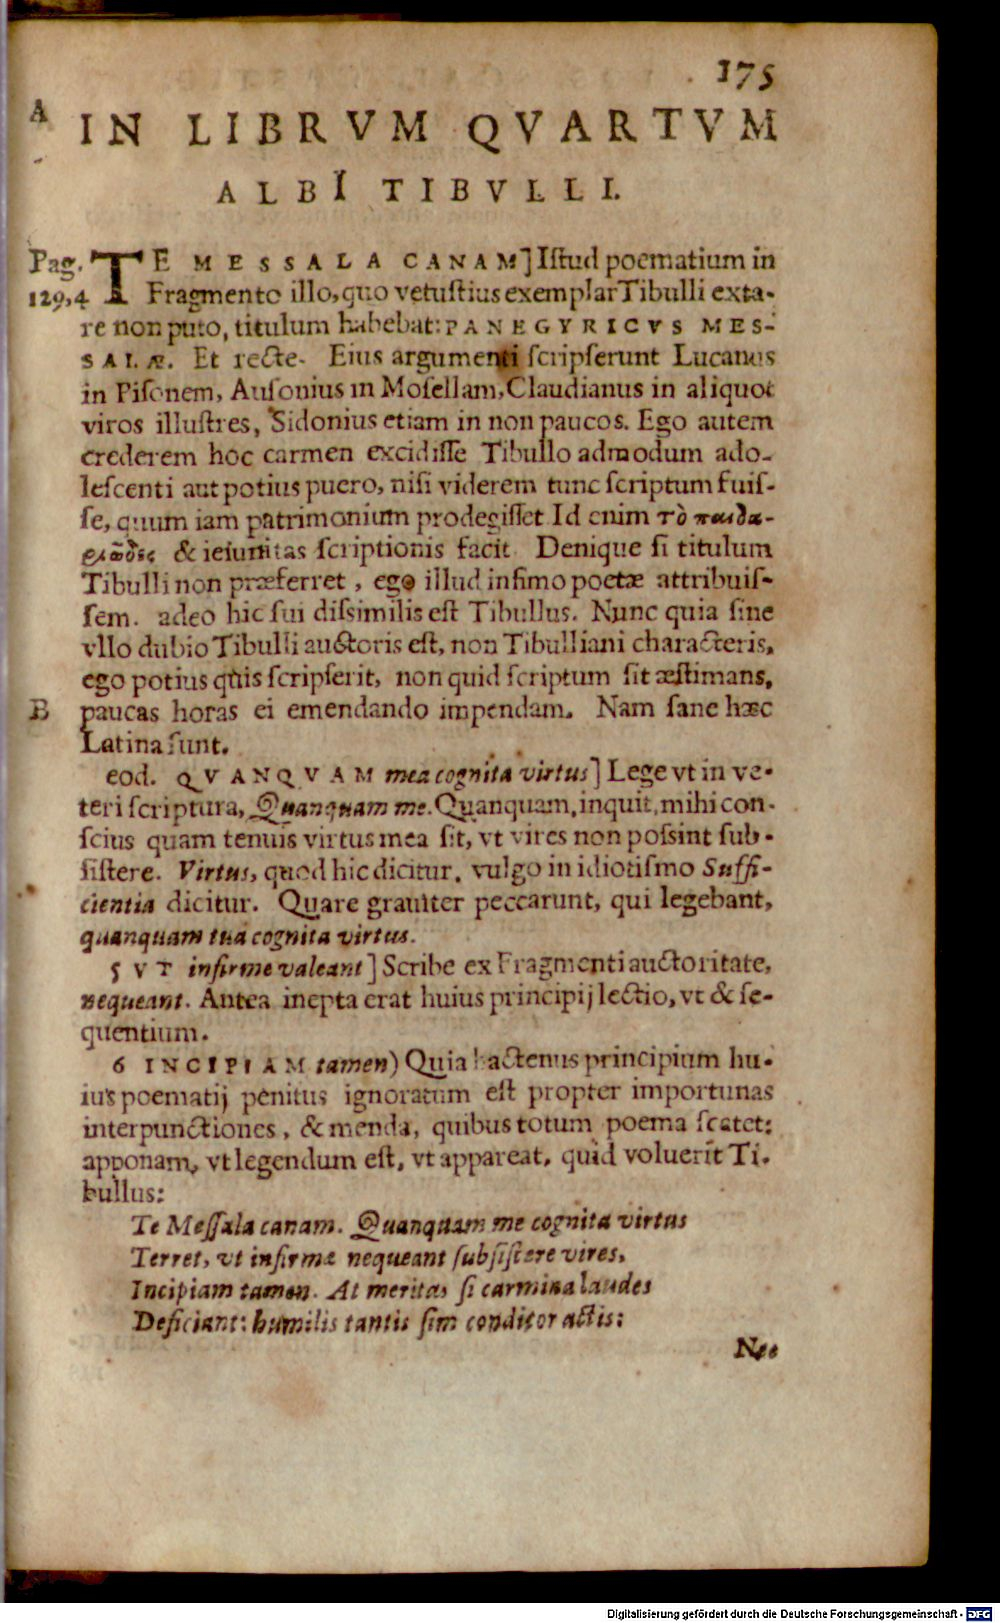 175
A
IN LIBRVM QVARTVM
ALBI TIBVLLI.
Pag. 129,4 TE MESSALA CANAM] Istud poematium in
Fragmento illo, quo vetustius exemplar Tibulli exta-
re non puto, titulum habebat: PANEGYRICVS MES-
SALÆ. Et recte. Eius argumenti scripserunt Lucanus
in Pisonem, Ausonius in Mosellam, Claudianus in aliquot
viros illustres, Sidonius etiam in non paucos. Ego autem
crederem hoc carmen excidisse Tibullo admodum ado-
lescenti aut potius puero, nisi viderem tunc scriptum fuis-
se, quum iam patrimonium prodegisset Id enim τὸ παιδα-
ριῶδες & ieiunitas scriptionis facit. Denique si titulum
Tibulli non præferret, ego illud infimo poetæ attribuis-
sem. adeo hic sui dissimilis est Tibullus. Nunc quia sine
vllo dubio Tibulli auctoris est, non Tibulliani characteris,
ego potius quis scripserit, non quid scriptum sit æstimans,
B paucas horas ei emendando impendam. Nam sane hæc
Latina sunt.
eod. QVANQVAM mea cognita virtus] Lege vt in ve-
teri scriptura, Quanquam me. Quanquam, inquit, mihi con-
scius quam tenuis virtus mea sit, vt vires non possint sub-
sistere. Virtus, quod hic dicitur, vulgo in idiotismo Suffi-
cientia dicitur. Quare grauiter peccarunt, qui legebant,
quanquam tua cognita virtus.
5 VT infirme valeant] Scribe ex Fragmenti auctoritate,
nequeant. Antea inepta erat huius principij lectio, vt & se-
quentium.
6 INCIPIAM tamen) Quia hactenus principium hu-
ius poematij penitus ignoratum est propter importunas
interpunctiones, & menda, quibus totum poema scatet:
apponam, vt legendum est, vt appareat, quid voluerit Ti-
bullus:
Te Messala canam. Quanquam me cognita virtus
Terret, vt infirmæ nequeant subsistere vires,
Incipiam tamen. At meritas si carmina laudes
Deficiant: humilis tantis sim conditor actis:
Nec
Digitalisierung gefördert durch die Deutsche Forschungsgemeinschaft - DFG